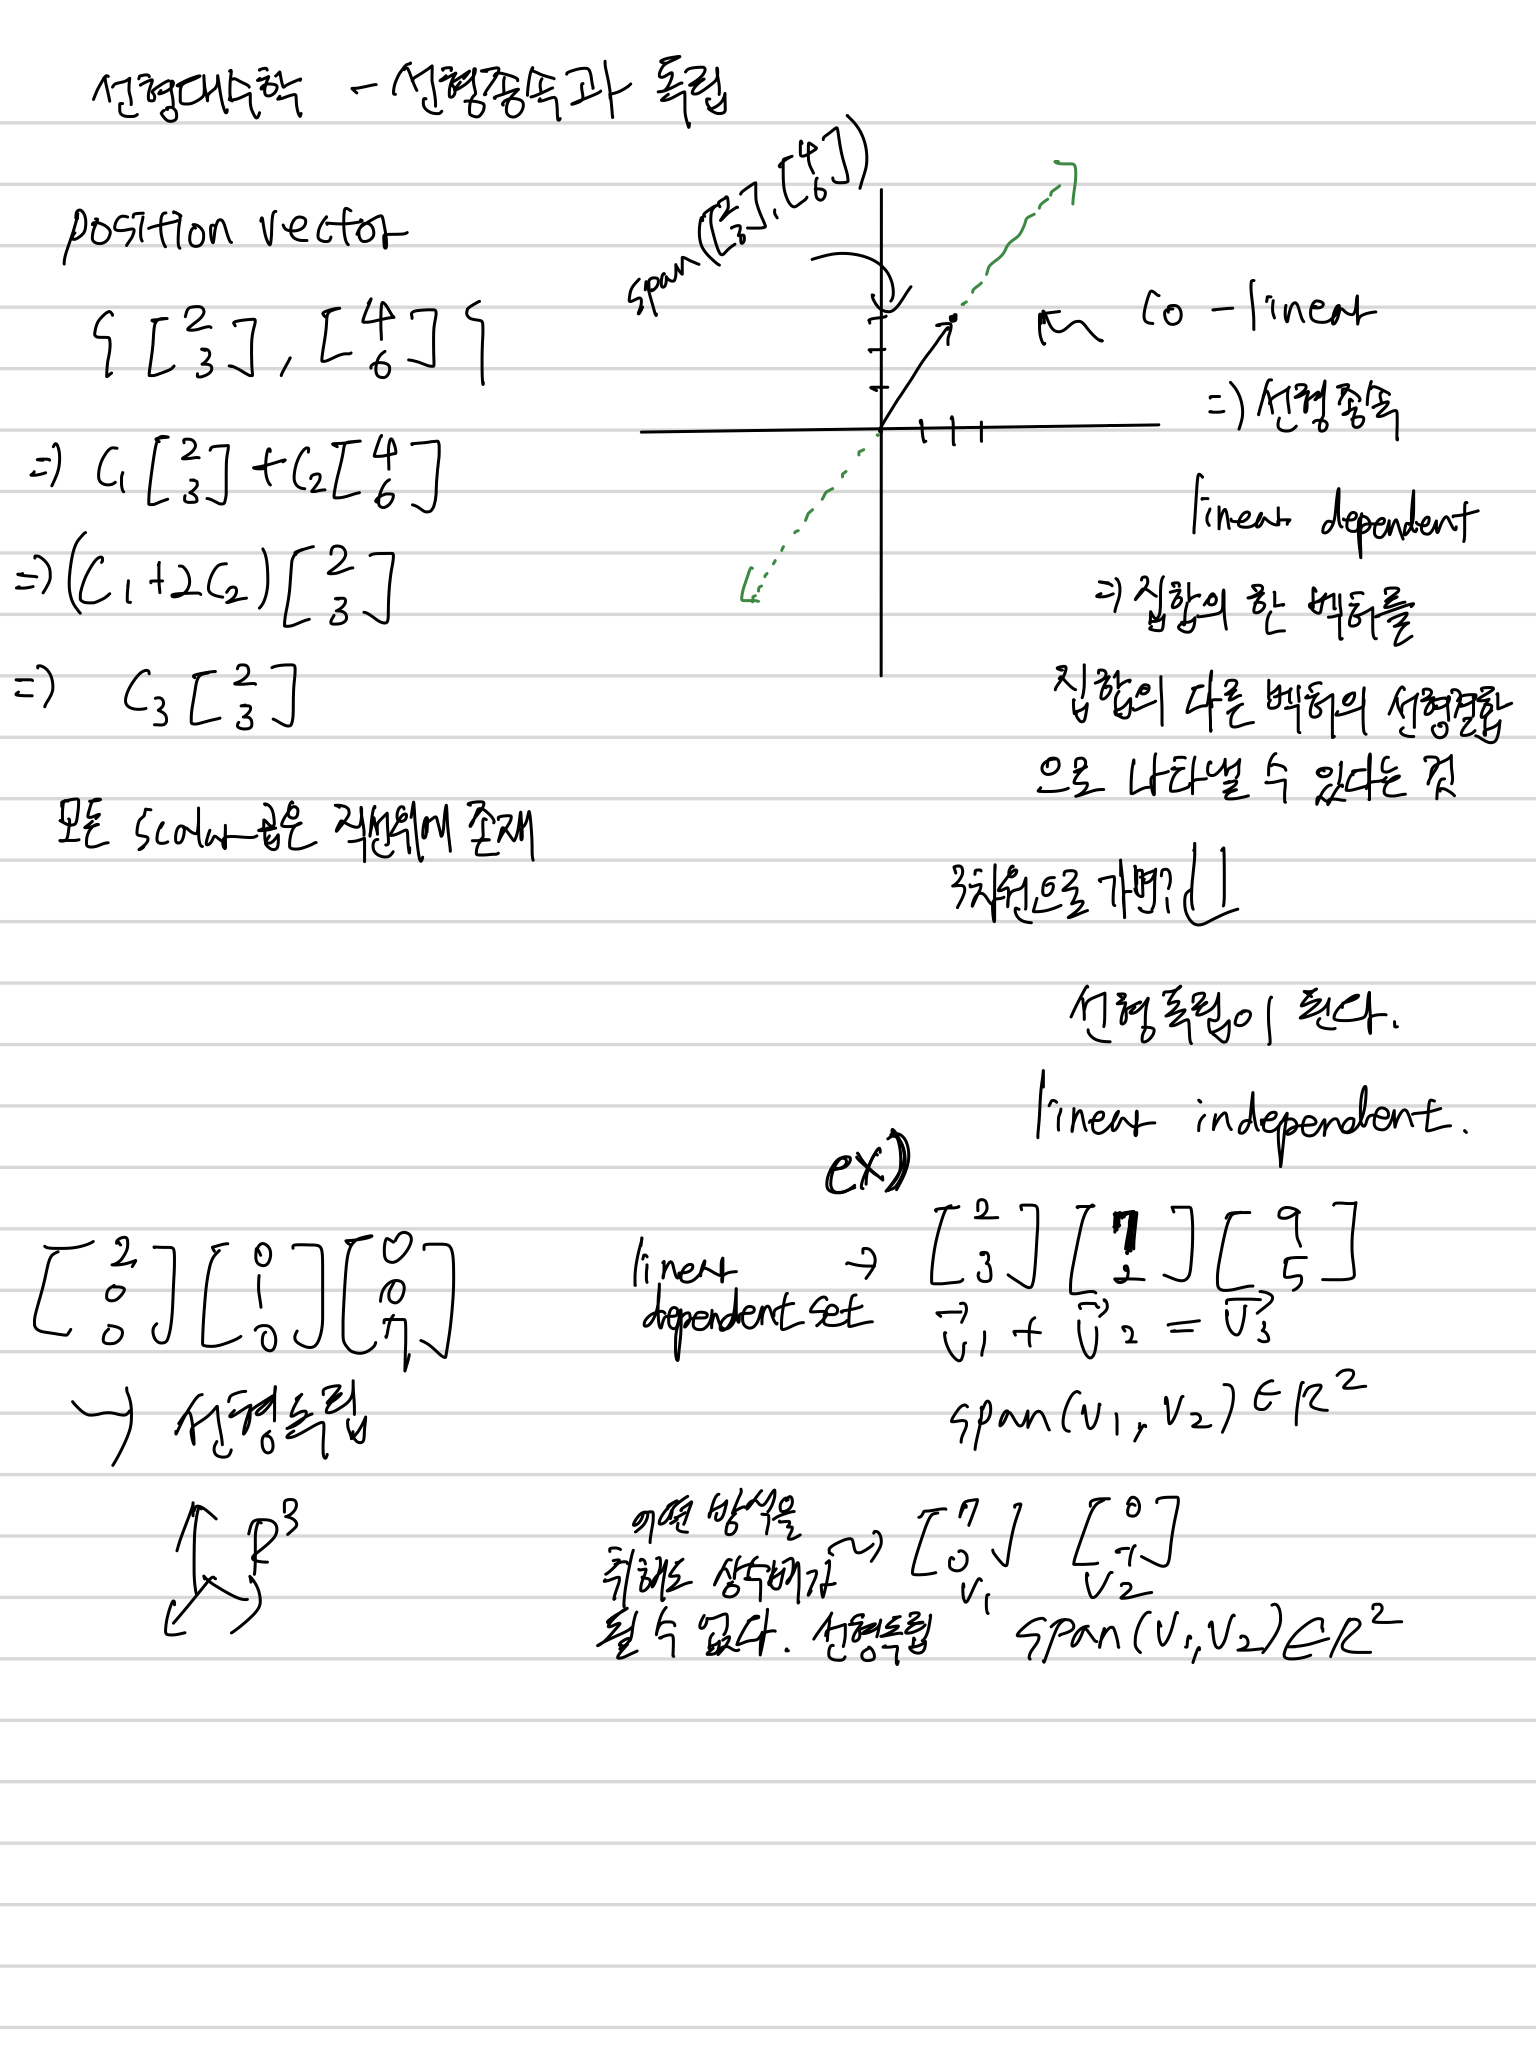 선형대수학 - 선형종속과 독립
position vector
{ [2 3], [4 6] }
⇒ C₁ [2 3] + C₂ [4 6]
⇒ (C₁+2C₂) [2 3]
⇒ C₃ [2 3]
모든 scalar곱은 직선위에 존재
span([2 3], [4 6])
co-linear
⇒ 선형종속
linear dependent
⇒ 집합의 한 벡터를
집합의 다른 벡터의 선형결합
으로 나타낼 수 있다는 것
3차원으로 가면?
선형독립이 된다.
linear independent.
[2 0 0] [0 1 0] [0 0 7]
→ 선형독립
R³
ex)
linear → [2 3] [7 2] [9 5]
dependent set v₁ + v₂ = v₃
span(v₁, v₂) ∈ R²
어떤 방식을
취해도 상수배가 → [7 0] [0 -1]
될 수 없다. 선형독립
v₁ v₂
span(v₁, v₂) ∈ R²